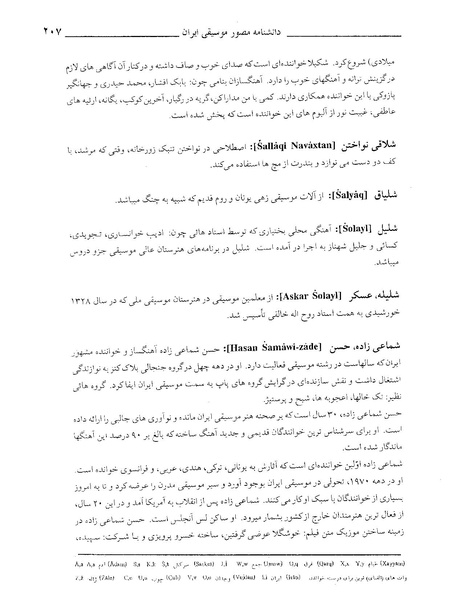 دانشنامه مصور موسیقی ایران ۲۰۷
میلادی) شروع کرد. شکیلا خواننده‌ای است که صدای خوب و صاف داشته و در کنار آن آگاهی های لازم
در گزینش ترانه و آهنگهای خوب را دارد. آهنگسازان بنامی چون: بابک افشار، محمد حیدری و جهانگیر
پازوکی با این خواننده همکاری دارند. کمی با من مدارا کن، گریه در رگبار، آخرین کوکب، یگانه، ارثیه های
عاطفی، غیبت نور از آلبوم های این خواننده است که پخش شده است.
شلاقی نواختن [Šallâqi Navâxtan]: اصطلاحی در نواختن تنبک زورخانه، وقتی که مرشد، با
کف دو دست می نوازد و بندرت از مچ ها استفاده می‌کند.
شلیاق [Šalyâq]: از آلات موسیقی زهی یونان و روم قدیم که شبیه به چنگ میباشد.
شلیل [Šolayl]: آهنگی محلی بختیاری که توسط استاد هائی چون: ادیب خوانساری، تجویدی،
کسائی و جلیل شهناز به اجرا در آمده است. شلیل در برنامه‌های هنرستان عالی موسیقی جزو دروس
میباشد.
شلیله، عسکر [Askar Šolayl]: از معلمین موسیقی در هنرستان موسیقی ملی که در سال ۱۳۲۸
خورشیدی به همت استاد روح اله خالقی تأسیس شد.
شماعی زاده، حسن [Hasan Šamâwi-zâde]: حسن شماعی زاده آهنگساز و خواننده مشهور
ایران که سالهاست در رشته موسیقی فعالیت دارد. او در دهه چهل در گروه جنجالی بلاک کتز به نوازندگی
اشتغال داشت و نقش سازنده‌ای در گرایش گروه های پاپ به سمت موسیقی ایران ایفا کرد. گروه هائی
نظیر: تک خالها، اعجوبه ها، شبح و پرستیژ.
حسن شماعی زاده، ۳۰ سال است که بر صحنه هنر موسیقی ایران مانده و نوآوری های جالبی را ارائه داده
است. او برای سرشناس ترین خوانندگان قدیمی و جدید آهنگ ساخته که بالغ بر ۹۰ درصد این آهنگها
ماندگار شده است.
شماعی زاده اوّلین خواننده‌ای است که آثارش به یونانی، ترکی، هندی، عربی، و فرانسوی خوانده است.
او در دهه ۱۹۷۰، تحولی در موسیقی ایران بوجود آورد و سبر موسیقی مدرن را عرضه کرد و تا به امروز
بسیاری از خوانندگان با سبک او کار می‌کنند. شماعی زاده پس از انقلاب به آمریکا آمد و در این ۲۰ سال،
از فعال ترین هنرمندان خارج از کشور بشمار میرود. او ساکن لس آنجلس است. حسن شماعی زاده در
زمینه ساختن موزیک متن فیلم: خوشگلا عوضی گرفتین، ساخته خسرو پرویزی و با شرکت: سپیده،